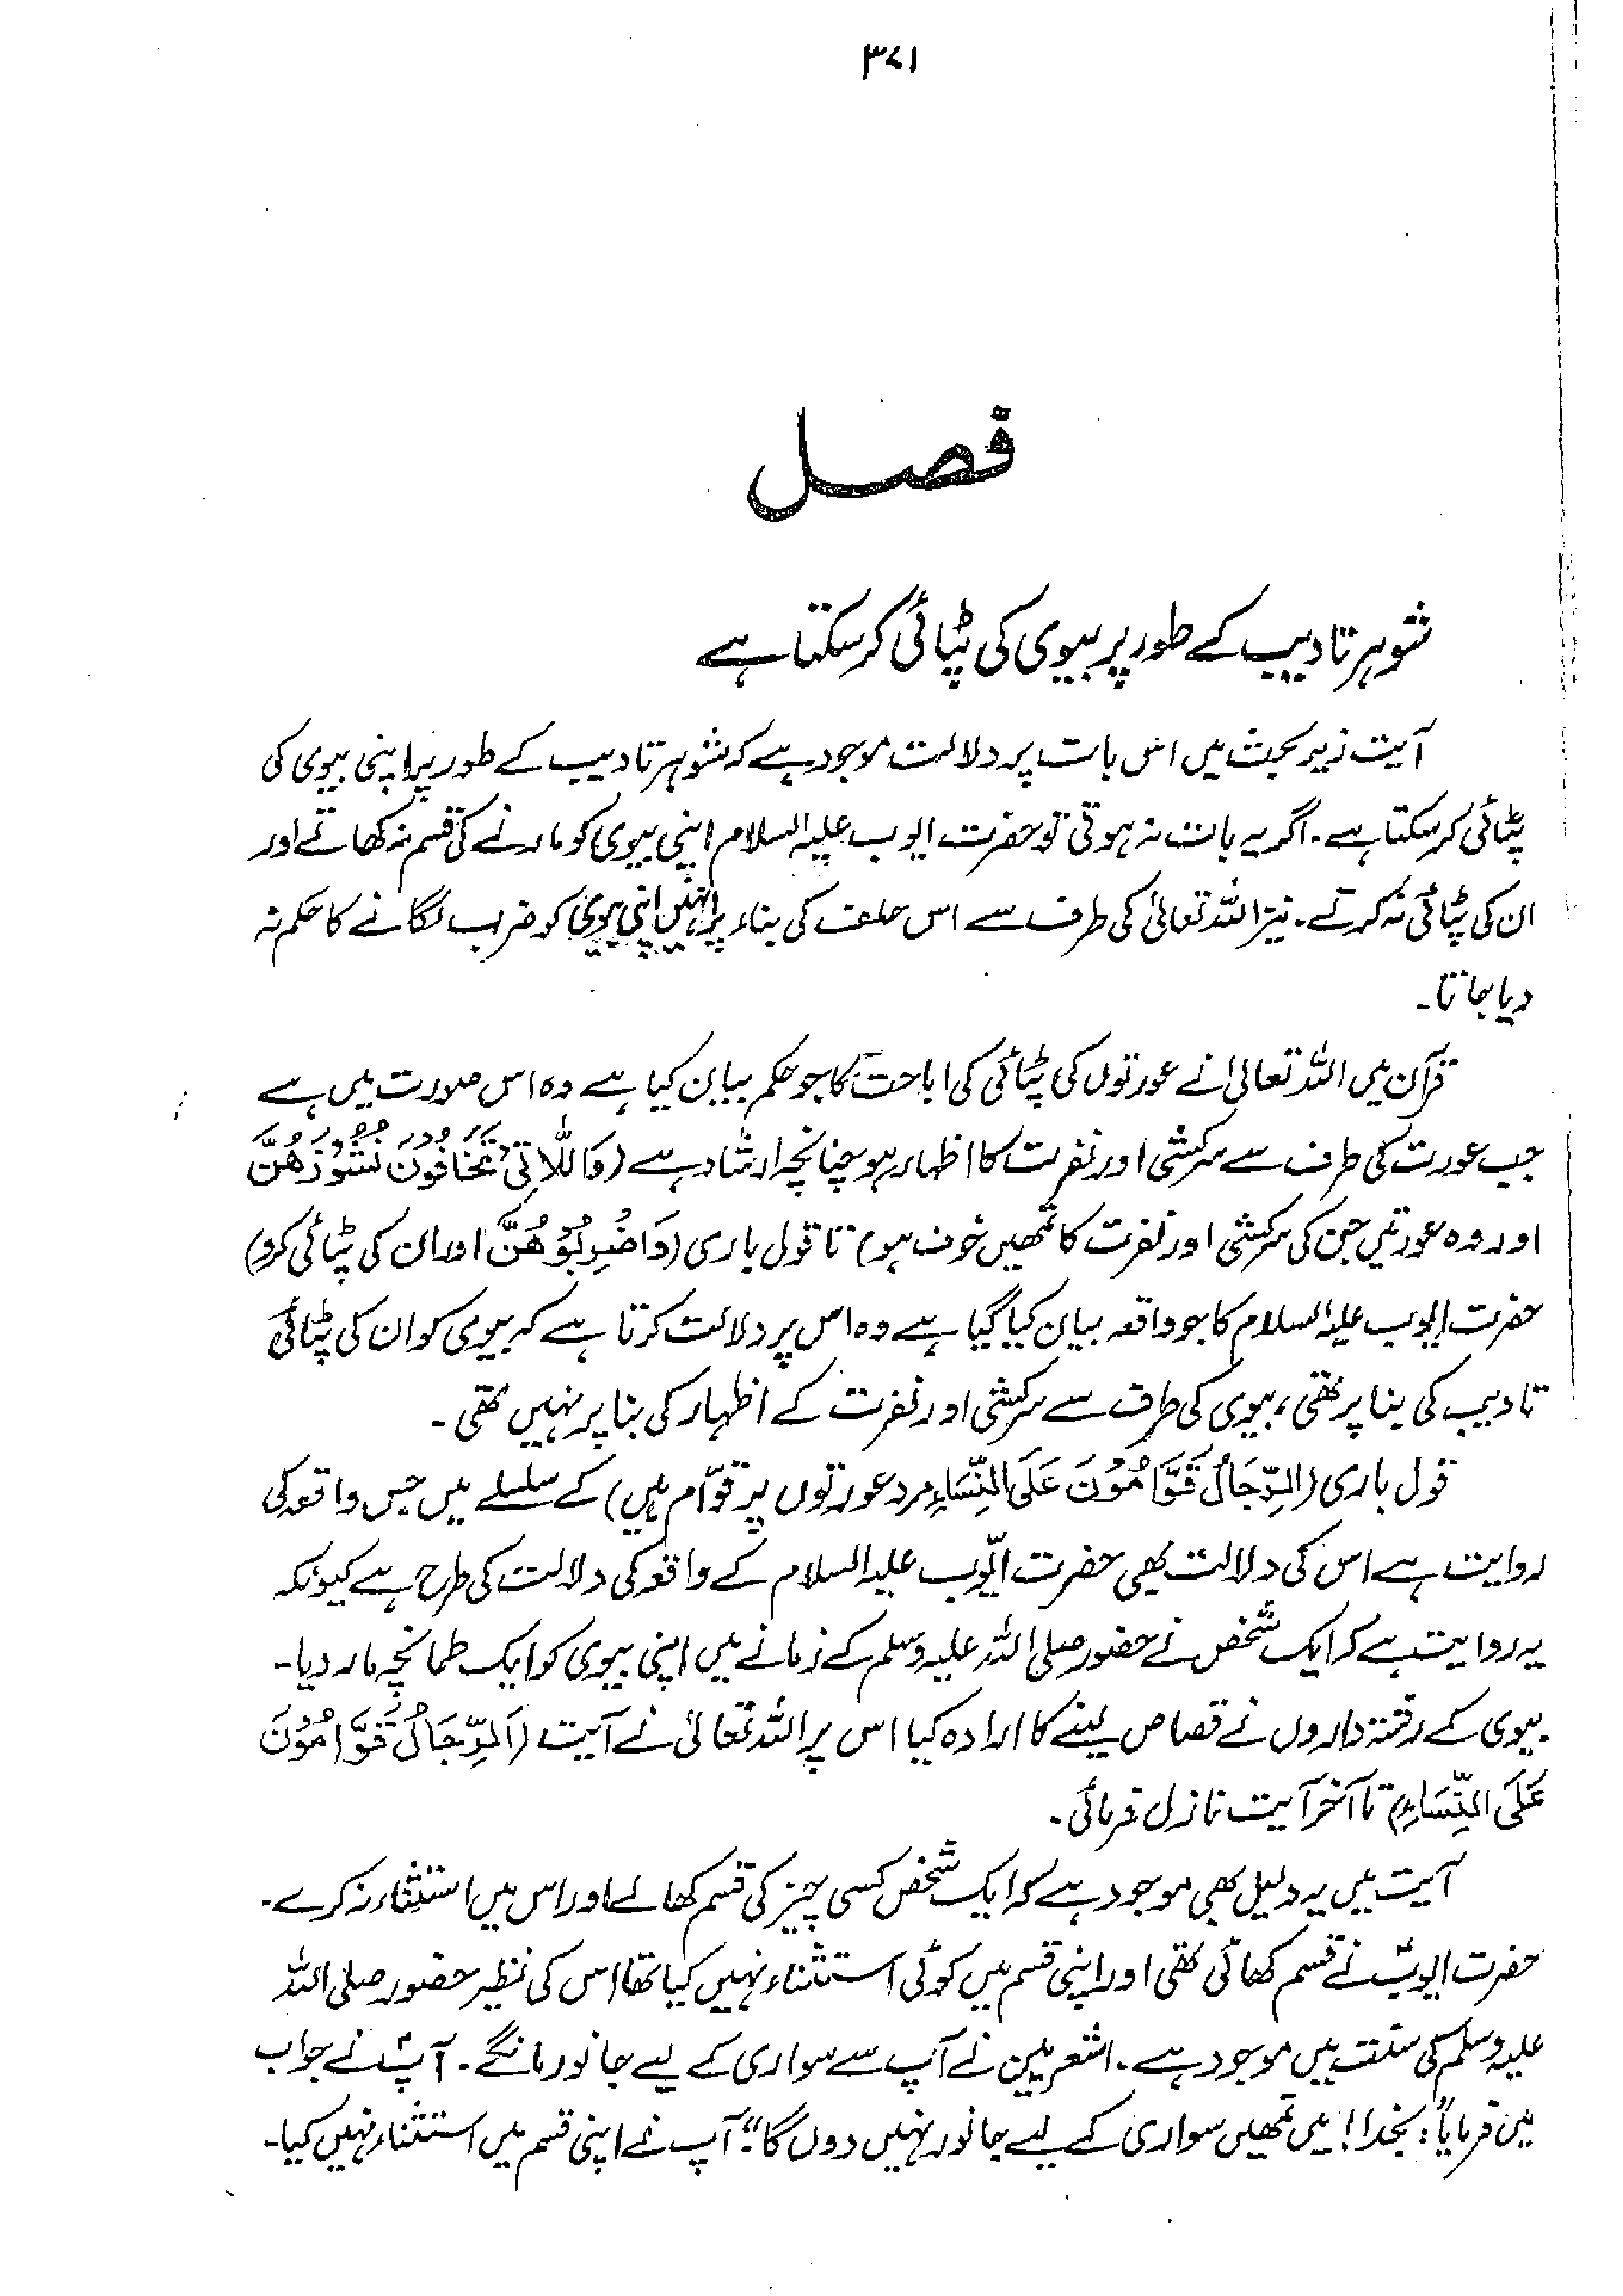 ۳۷۱
فصل
شوہر تادیب کے طور پر بیوی کی پٹائی کر سکتا ہے
آیت زیر بحث میں اس بات پر دلالت موجود ہے کہ شوہر تادیب کے طور پر اپنی بیوی کی
پٹائی کر سکتا ہے۔ اگر یہ بات نہ ہوتی تو حضرت ایوب علیہ السلام اپنی بیوی کو مارنے کی قسم نہ کھاتے اور
ان کی پٹائی نہ کرتے۔ نیز اللہ تعالیٰ کی طرف سے اس حلف کی بناء پر انہیں اپنی بیوی کو ضرب لگانے کا حکم نہ
دیا جاتا۔
قرآن میں اللہ تعالیٰ نے عورتوں کی پٹائی کی اباحت کا جو حکم بیان کیا ہے وہ اس صورت میں ہے
جب عورت کی طرف سے سرکشی اور نفرت کا اظہار ہو چنانچہ ارشاد ہے (وَاللَّاتِیْ تَخَافُوْنَ نُشُوْزَهُنَّ
اور وہ عورتیں جن کی سرکشی اور نفرت کا تمھیں خوف ہو) تا قول باری (وَاضْرِبُوْهُنَّ اور ان کی پٹائی کرو)
حضرت ایوب علیہ السلام کا جو واقعہ بیان کیا گیا ہے وہ اس پر دلالت کرتا ہے کہ بیوی کو ان کی پٹائی
تادیب کی بنا پر تھی، بیوی کی طرف سے سرکشی اور نفرت کے اظہار کی بنا پر نہیں تھی۔
قول باری (الرِّجَالُ قَوَّامُوْنَ عَلَى النِّسَاءِ مرد عورتوں پر قوّام ہیں) کے سلسلے میں جس واقعہ کی
روایت ہے اس کی دلالت بھی حضرت ایّوب علیہ السلام کے واقعہ کی دلالت کی طرح ہے کیونکہ
یہ روایت ہے کہ ایک شخص نے حضور صلی اللہ علیہ وسلم کے زمانے میں اپنی بیوی کو ایک طمانچہ مار دیا۔
بیوی کے رشتہ داروں نے قصاص لینے کا ارادہ کیا اس پر اللہ تعالیٰ نے آیت (اَلرِّجَالُ قَوَّامُوْنَ
عَلَى النِّسَاءِ) تا آخر آیت نازل فرمائی۔
آیت میں یہ دلیل بھی موجود ہے کہ ایک شخص کسی چیز کی قسم کھالے اور اس میں استثناء نہ کرے۔
حضرت ایوبؑ نے قسم کھائی تھی اور اپنی قسم میں کوئی استثناء نہیں کیا تھا اس کی نظیر حضور صلی اللہ
علیہ وسلم کی سنت میں موجود ہے۔ اشعریین نے آپ سے سواری کے لیے جانور مانگے۔ آپؐ نے جواب
میں فرمایا: "بخدا! میں تمھیں سواری کے لیے جانور نہیں دوں گا"۔ آپ نے اپنی قسم میں استثناء نہیں کیا۔